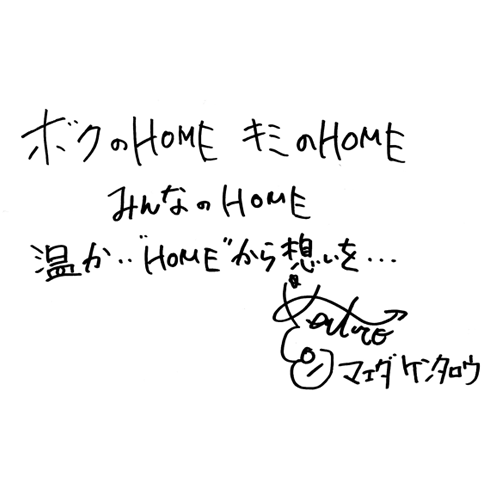 ボクのHOME キミのHOME
みんなのHOME
温か‥"HOME"から想いを…
マエダケンタロウ